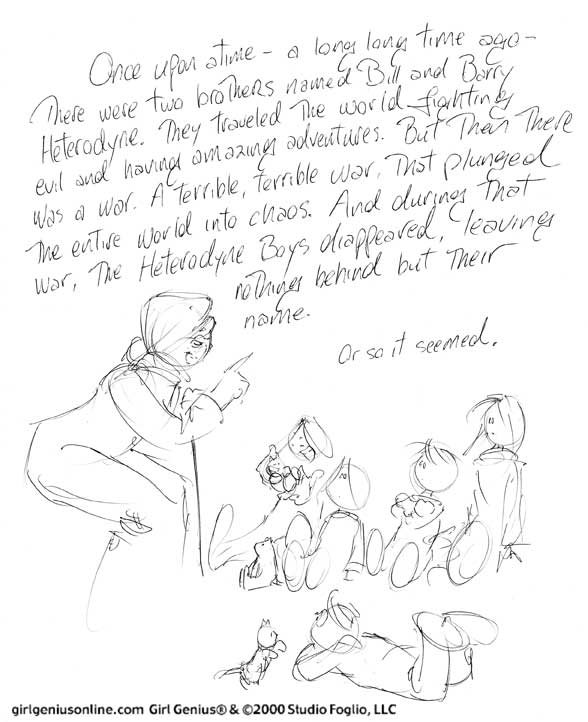 Once upon a time - a long long time ago -
There were two brothers named Bill and Barry
Heterodyne. They traveled the world fighting
evil and having amazing adventures. But then there
was a war. A terrible, terrible war, that plunged
the entire world into chaos. And during that
war, the Heterodyne Boys disappeared, leaving
nothing behind but their
name.
Or so it seemed.
girlgeniusonline.com Girl Genius® & ©2000 Studio Foglio, LLC